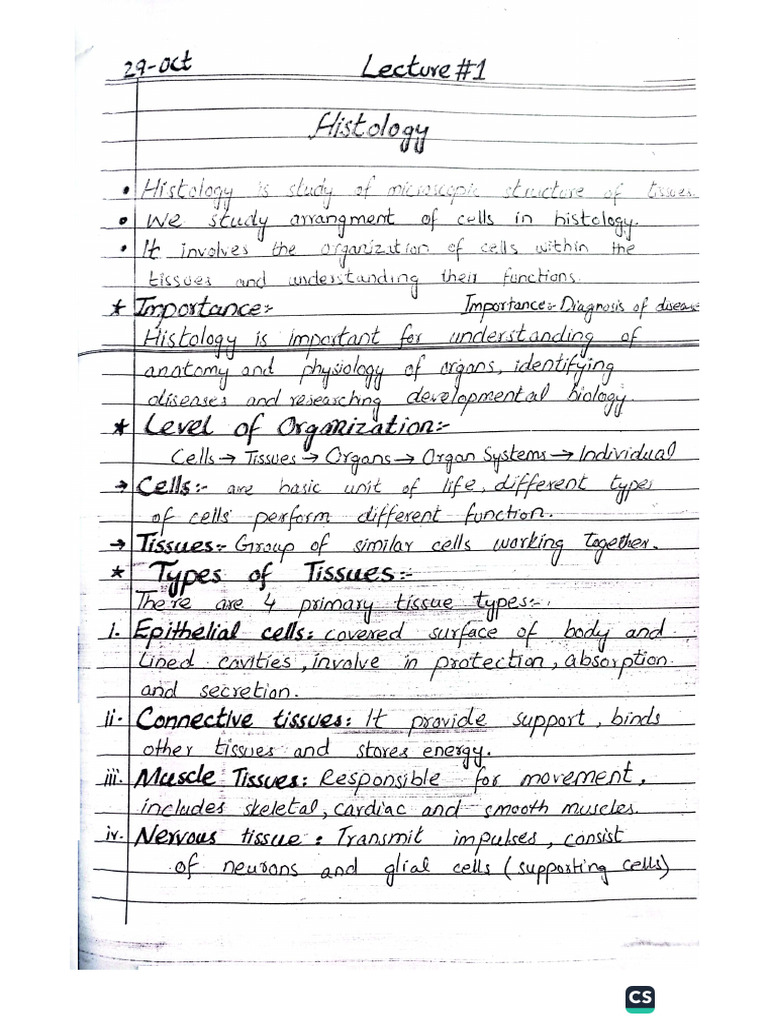 29-Oct Lecture #1
Histology
• Histology is study of microscopic structure of tissues.
• We study arrangment of cells in histology.
• It involves the organization of cells within the
tissues and understanding their functions.
* Importance:- Importance:- Diagnosis of disease
Histology is important for understanding of
anatomy and physiology of organs, identifying
diseases and researching developmental biology.
* Level of Organization:-
Cells → Tissues → Organs → Organ Systems → Individual
→ Cells:- are basic unit of life, different types
of cells perform different function.
→ Tissues:- Group of similar cells working together.
* Types of Tissues:-
There are 4 primary tissue types:-
i. Epithelial cells: covered surface of body and
Lined cavities, involve in protection, absorption
and secretion.
ii. Connective tissues: It provide support, binds
other tissues and stores energy.
iii. Muscle Tissues: Responsible for movement,
includes skeletal, cardiac and smooth muscles.
iv. Nervous tissue: Transmit impulses, consist
of neurons and glial cells (supporting cells)
CS